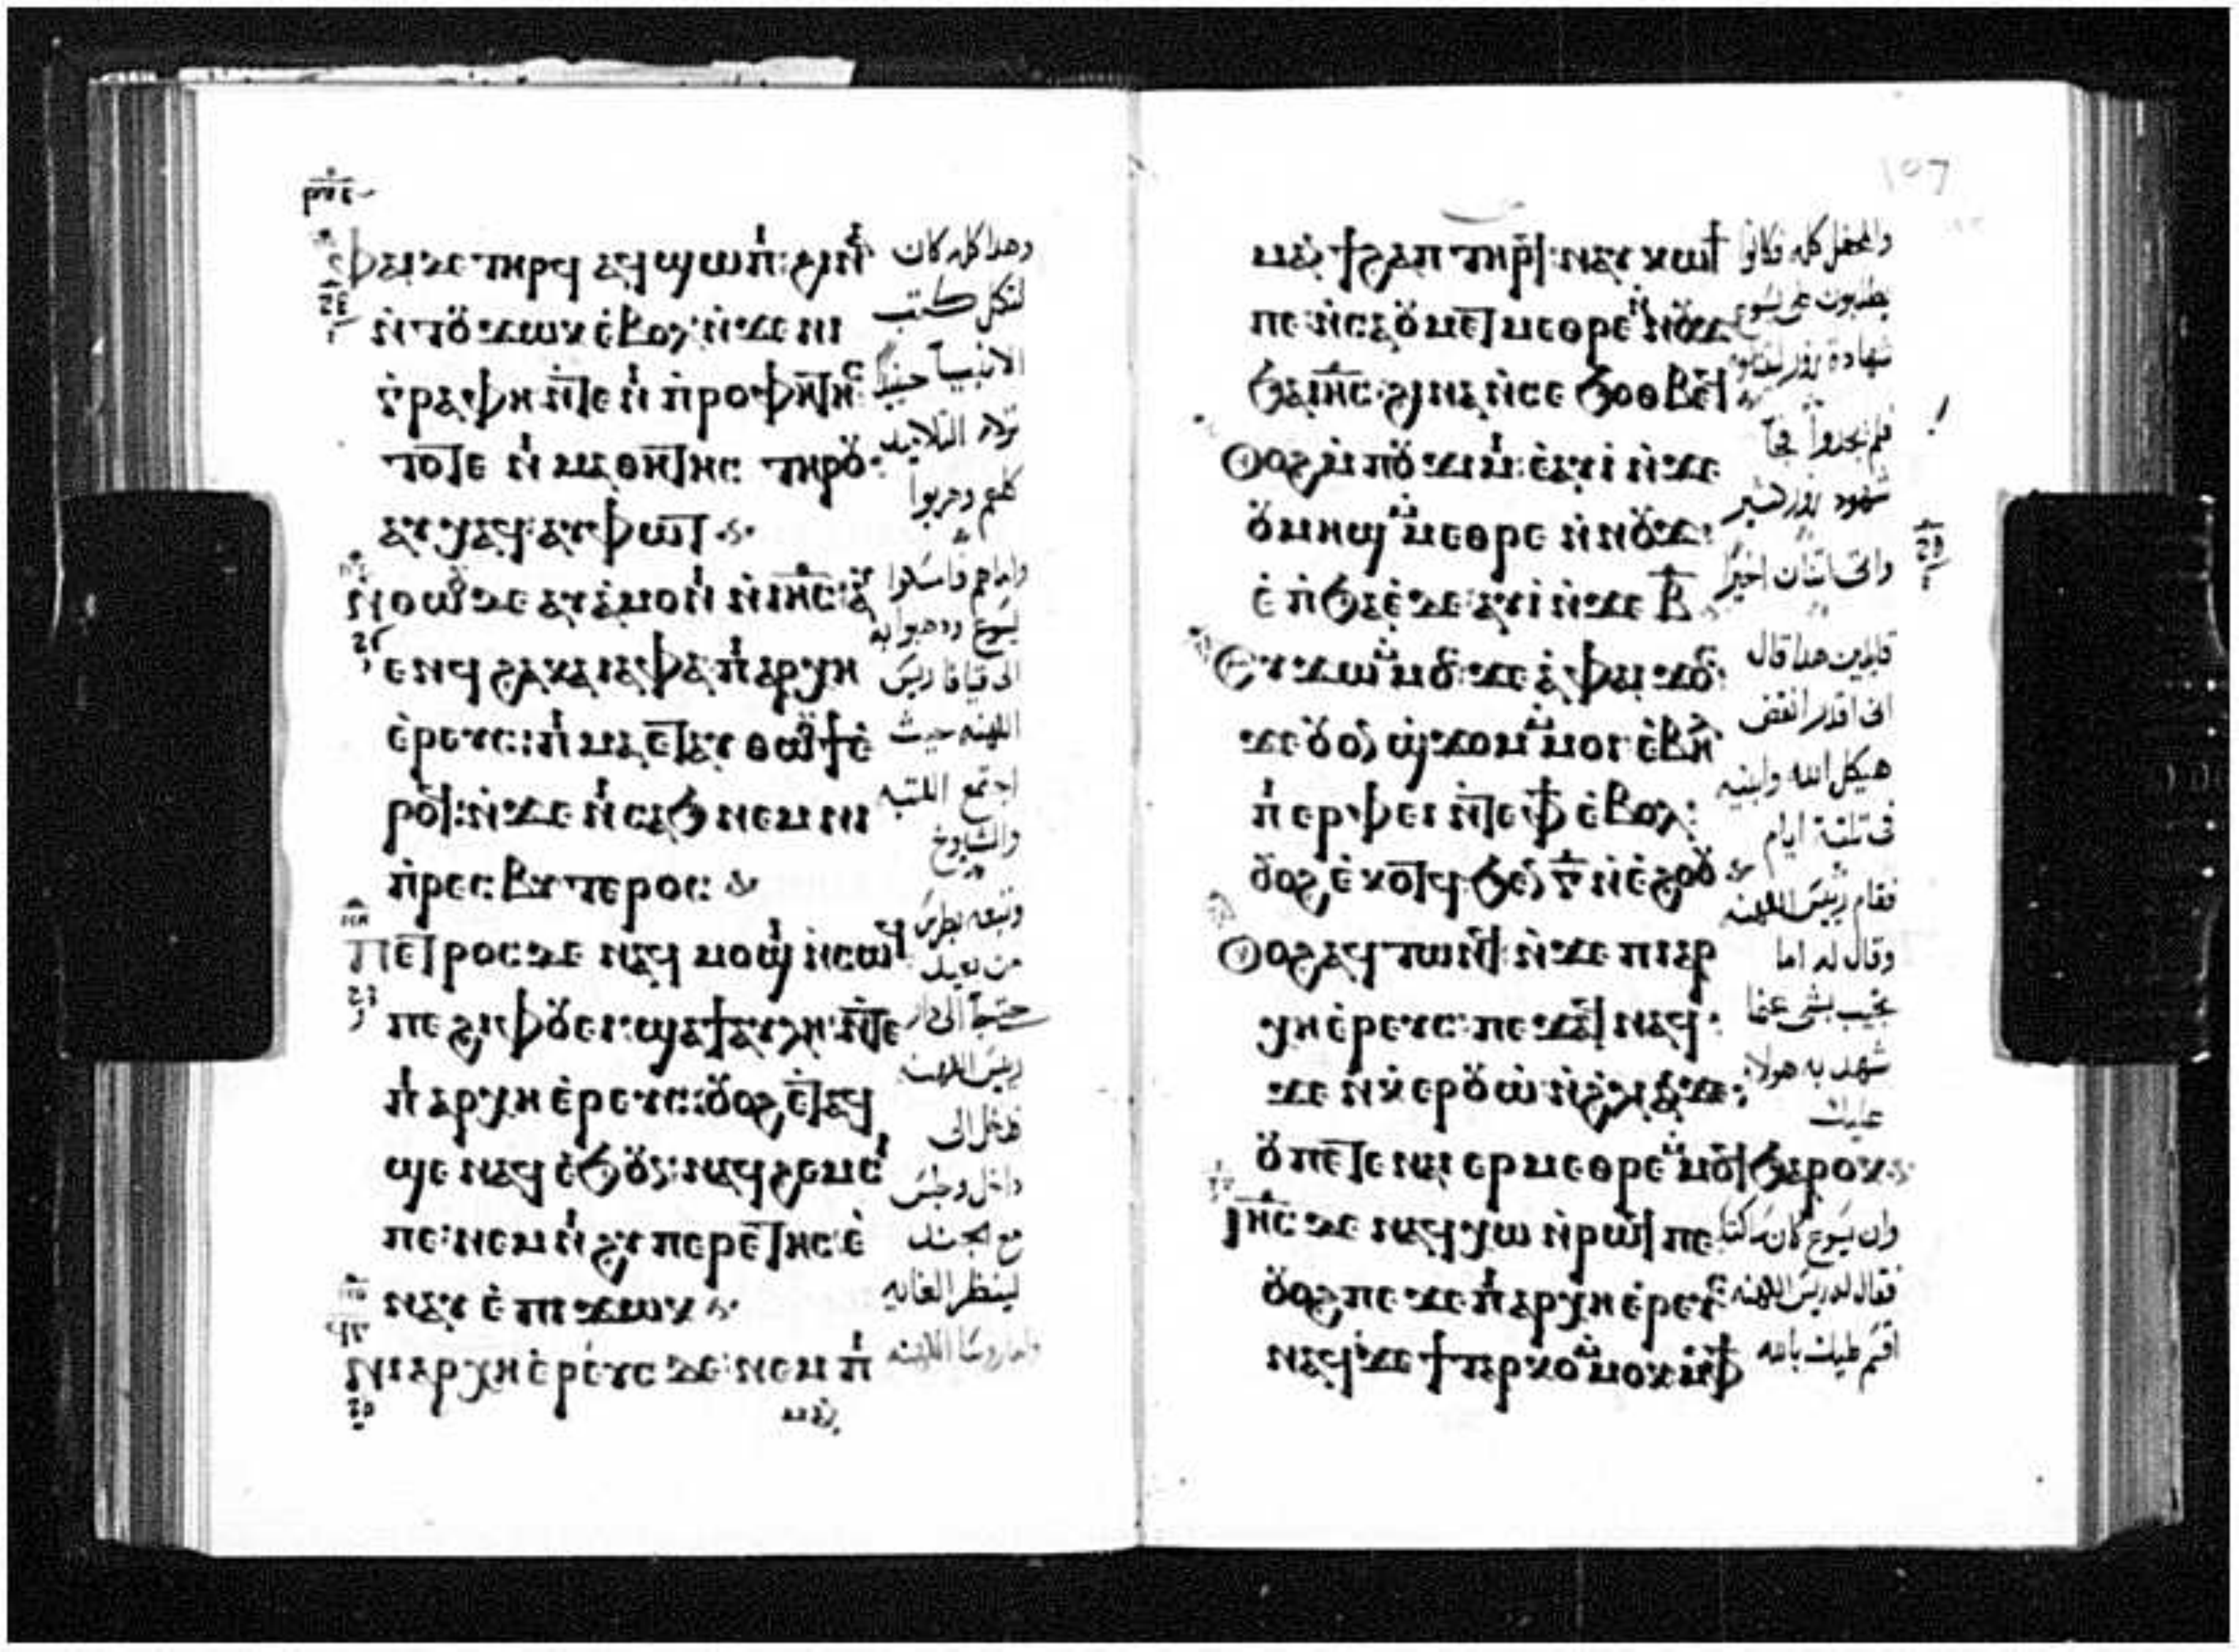 ⲫⲁⲓ ⲇⲉ ⲧⲏⲣϥ ⲁϥϣⲱⲡⲓ: ϩⲓⲛⲁ
ⲛ̀ⲧⲟⲩϫⲱⲕ ⲉ̀ⲃⲟⲗ: ⲛ̀ϫⲉ ⲛⲓ
ⲅ̀ⲣⲁⲫⲏ ⲛ̀ⲧⲉ ⲛⲓ ⲡ̀ⲣⲟⲫⲏⲧⲏⲥ:
ⲧⲟⲧⲉ ⲛⲓ ⲙⲁⲑⲏⲧⲏⲥ ⲧⲏⲣⲟⲩ:
ⲁⲩⲭⲁϥ: ⲁⲩⲫⲱⲧ
ⲛ̀ⲑⲱⲟⲩ ⲇⲉ ⲁⲩⲁ̀ⲙⲟⲛⲓ ⲛ̀ⲓⲏ̅ⲥ̅: ⲁⲩ
ⲉⲛϥ ϩⲁ ⲕⲁⲓⲁⲫⲁ ⲡⲓⲁⲣⲭⲏ
ⲉ̀ⲣⲉⲩⲥ: ⲡⲓ ⲙⲁ ⲉⲧⲁⲩ ⲑⲱⲟⲩϯ ⲉ̀
ⲣⲟϥ: ⲛ̀ϫⲉ ⲛⲓ ⲥⲁϧ ⲛⲉⲙ ⲛⲓ
ⲡ̀ⲣⲉⲥⲃⲩⲧⲉⲣⲟⲥ:
ⲡⲉⲧⲣⲟⲥ ⲇⲉ ⲛⲁϥ ⲙⲟϣⲓ ⲛ̀ⲥⲱϥ
ⲡⲉ ϩⲓ ⲫⲟⲩⲉⲓ: ϣⲁ ϯⲁⲩⲗⲏ ⲛ̀ⲧⲉ
ⲡⲓⲁⲣⲭⲏ ⲉ̀ⲣⲉⲩⲥ: ⲟⲩⲟϩ ⲉ̀ⲧⲁϥ
ϣⲉ ⲛⲁϥ ⲉ̀ϧⲟⲩⲛ: ⲛⲁϥ ϩⲉⲙⲥⲓ
ⲡⲉ: ⲛⲉⲙ ⲛⲓ ϩⲩⲡⲉⲣⲉⲧⲏⲥ: ⲉ̀
ⲛⲁⲩ ⲉ̀ ⲡⲓ ϫⲱⲕ
ⲛⲓⲁⲣⲭⲏ ⲉ̀ⲣⲉⲩⲥ ⲇⲉ: ⲛⲉⲙ ⲡⲓ
ⲙⲁⲛ̀
وهدا كله كان
لتكمل كتب
الانبيا حينيذ
ترك التلاميد
كلهم وهربوا
واما هم فامسكوا
يسوع ودهبوا به
الى قيافا رييس
الكهنه حيث
اجتمع الكتبه
والشيوخ
وتبعه بطرس
من بعيد
الى دار
رييس الكهنه
فدخل الى
داخل وجلس
مع الجند
لينظر الغايه
107
ⲙⲁⲛ̀ϯϩⲁⲡ ⲧⲏⲣϥ: ⲛⲁⲩ ⲕⲱϯ
ⲡⲉ: ⲛ̀ⲥⲁ ⲟⲩ ⲙⲉⲧⲙⲉⲑⲣⲉ ⲛ̀ⲛⲟⲩϫ
ϧⲁ ⲓⲏ̅ⲥ̅: ϩⲓⲛⲁ ⲛ̀ⲥⲉ ϧⲟⲑⲃⲉϥ
ⲟⲩⲟϩ ⲙ̀ⲡⲟⲩ ϫⲓⲙⲓ: ⲉ̀ⲁⲩⲓ̀ ⲛ̀ϫⲉ
ⲟⲩⲙⲏϣ ⲙ̀ⲙⲉⲑⲣⲉ ⲛ̀ⲛⲟⲩϫ:
ⲉ̀ ⲡ̀ϧⲁⲉ̀ ⲇⲉ: ⲁⲩⲓ̀ ⲛ̀ϫⲉ ⲃ̅
ⲉⲩϫⲱ ⲙ̀ⲙⲟⲥ: ϫⲉ ⲁ̀ ⲫⲁⲓ ϫⲟⲥ:
ϫⲉ ⲟⲩⲟⲛ ϣϫⲟⲙ ⲙ̀ⲙⲟⲓ ⲉ̀ⲃⲉⲗ
ⲡⲓ ⲉⲣⲫⲉⲓ ⲛ̀ⲧⲉ ⲫϯ ⲉ̀ⲃⲟⲗ:
ⲟⲩⲟϩ ⲉ̀ ⲕⲟⲧϥ ϧⲉⲛ ⲅ̅ ⲛ̀ⲉ̀ϩⲟⲟⲩ
ⲟⲩⲟϩ ⲁϥ ⲧⲱⲛϥ: ⲛ̀ϫⲉ ⲡⲓⲁⲣ
ⲭⲏⲉ̀ⲣⲉⲩⲥ: ⲡⲉϫⲁϥ ⲛⲁϥ:
ϫⲉ ⲛ̀ⲕ̀ⲉⲣⲟⲩⲱ̀ ⲛ̀ϩ̀ⲗⲓ ⲁⲛ: ϫⲉ:
ⲟⲩ ⲡⲉⲧⲉ ⲛⲁⲓ ⲉⲣⲙⲉⲑⲣⲉ ⲙ̀ⲙⲟϥ ϧⲁⲣⲟⲕ
ⲓⲏ̅ⲥ̅ ⲇⲉ ⲛⲁϥ ⲭⲱ ⲛ̀ⲣⲱϥ ⲡⲉ
ⲟⲩⲟϩ ⲡⲉϫⲉ ⲡⲓⲁⲣⲭⲏⲉ̀ⲣⲉⲩⲥ
ⲛⲁϥ: ϫⲉ ϯⲧⲁⲣⲕⲟ ⲙ̀ⲙⲟⲕ ⲙ̀ⲫϯ
والمحفل كله فكانوا
يطلبون على يسوع
شهادة زور ليقتلوه
فلم يجدوا فجآ
شهود زور كثير
واتى اتنان اخيرا
قايلين هدا قال
انى اقدر انقض
هيكل الله وابنيه
فى تلتة ايام
فقام رييس الكهنه
وقال له اما
تجيب بشى عما
شهد به هولا
عليك
وان يسوع كان ساكتا
فقال له رييس الكهنه
اقسم عليك بالله